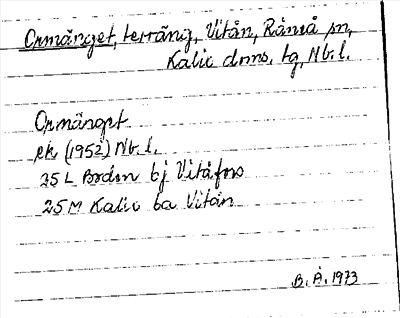 Ormänget, terräng, Vitån, Råneå sn,
Kalix dms. tg, Nb. l.
Ormänget
ek (1952) Nb. l.
25 L Boden bj Vitåfors
25 M Kalix ba Vitån
B. Å. 1973